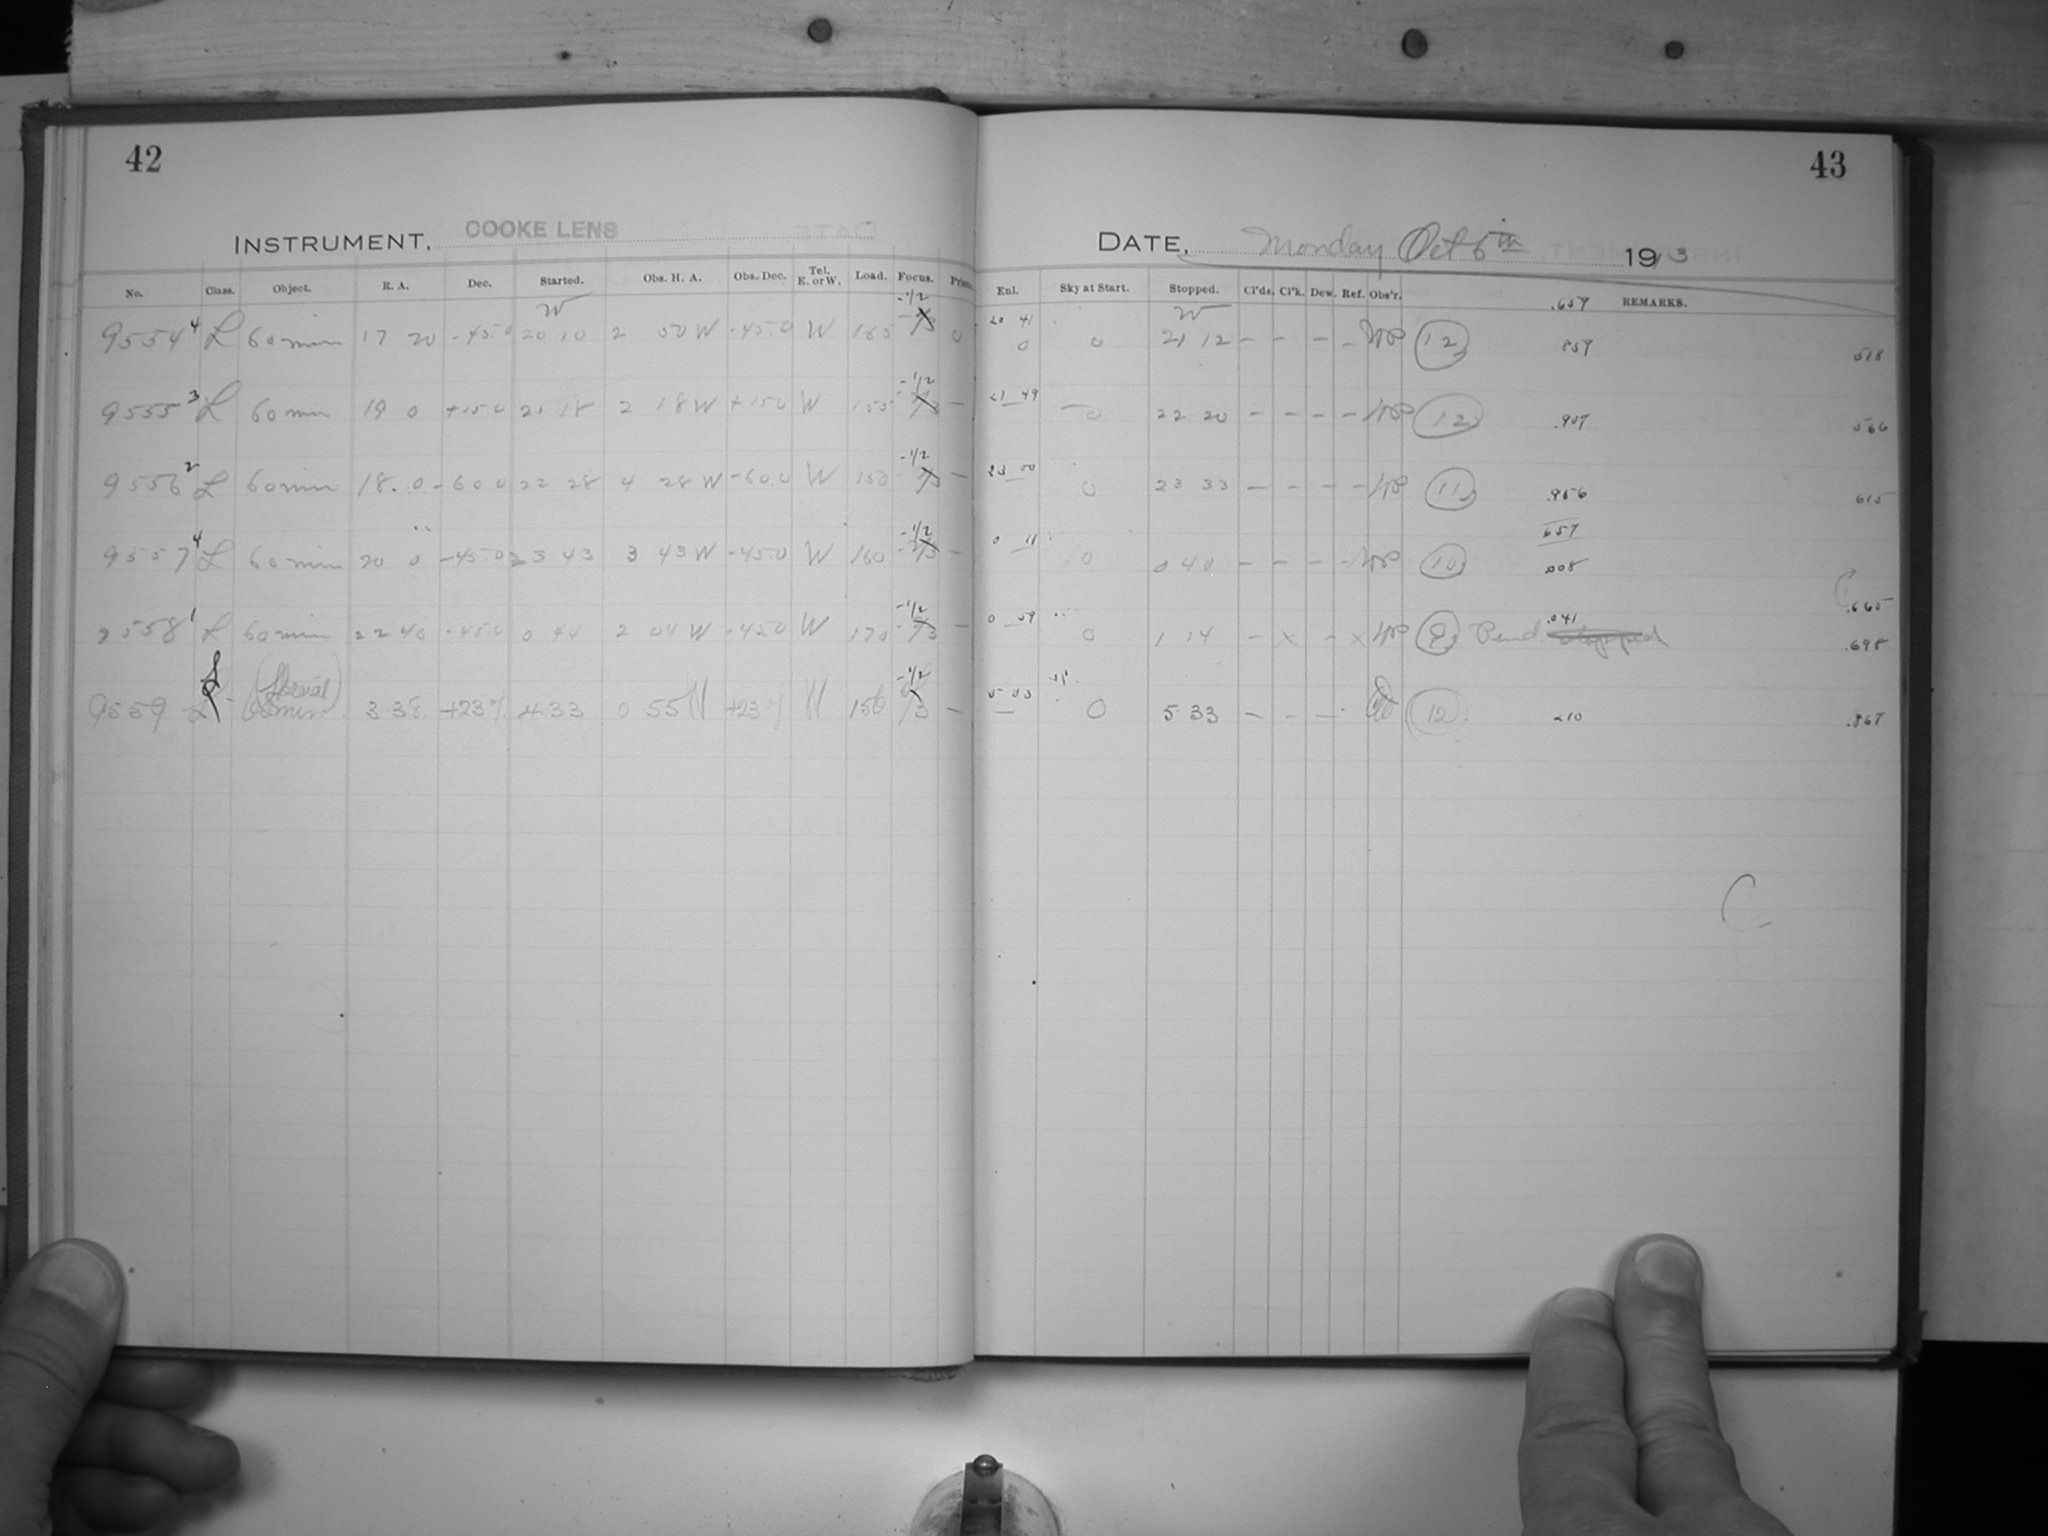 42
INSTRUMENT. COOKE LENS
No. Class. Object. R. A. Dec. Started. Obs. H. A. Obs. Dec. Tel. E. or W. Load. Focus. Prism
W -1/2
9554 4 L 60 min 17 20 -45.0 20 10 2 50 W -45.0 W 165 0
-1/2
9555 3 L 60 min 19 0 +15.0 21 18 2 18 W +15.0 W 155 —
-1/2
9556 2 L 60 min 18. 0 -60.0 22 28 4 28 W -60.0 W 150 —
-1/2
9557 4 L 60 min 20 0 -45.0 23 43 3 43 W -45.0 W 160 —
-1/2
9558 1 L 60 min 22 40 -45.0 0 44 2 04 W -45.0 W 170 —
-1/2
9559 L (Special) 60 min 3 38. +23 4 33 0 55 W +23 W 150 —
43
DATE, Monday Oct 6th 1913
Enl. Sky at Start. Stopped. Cl'ds. Cl'k. Dew. Ref. Obs'r. REMARKS.
W .657
20 41 0 0 21 12 – – – – 12 859 518
21 49 0 22 20 – – – – 12 .907 566
23 00 0 23 33 – – – – 11 .956 615
657
0 11 0 0 40 – – – – 10 .008 .665
0 59 0 1 14 – x – x 9 Pend. .041 .698
5 33 0 5 33 – – – 12 210 .867
C